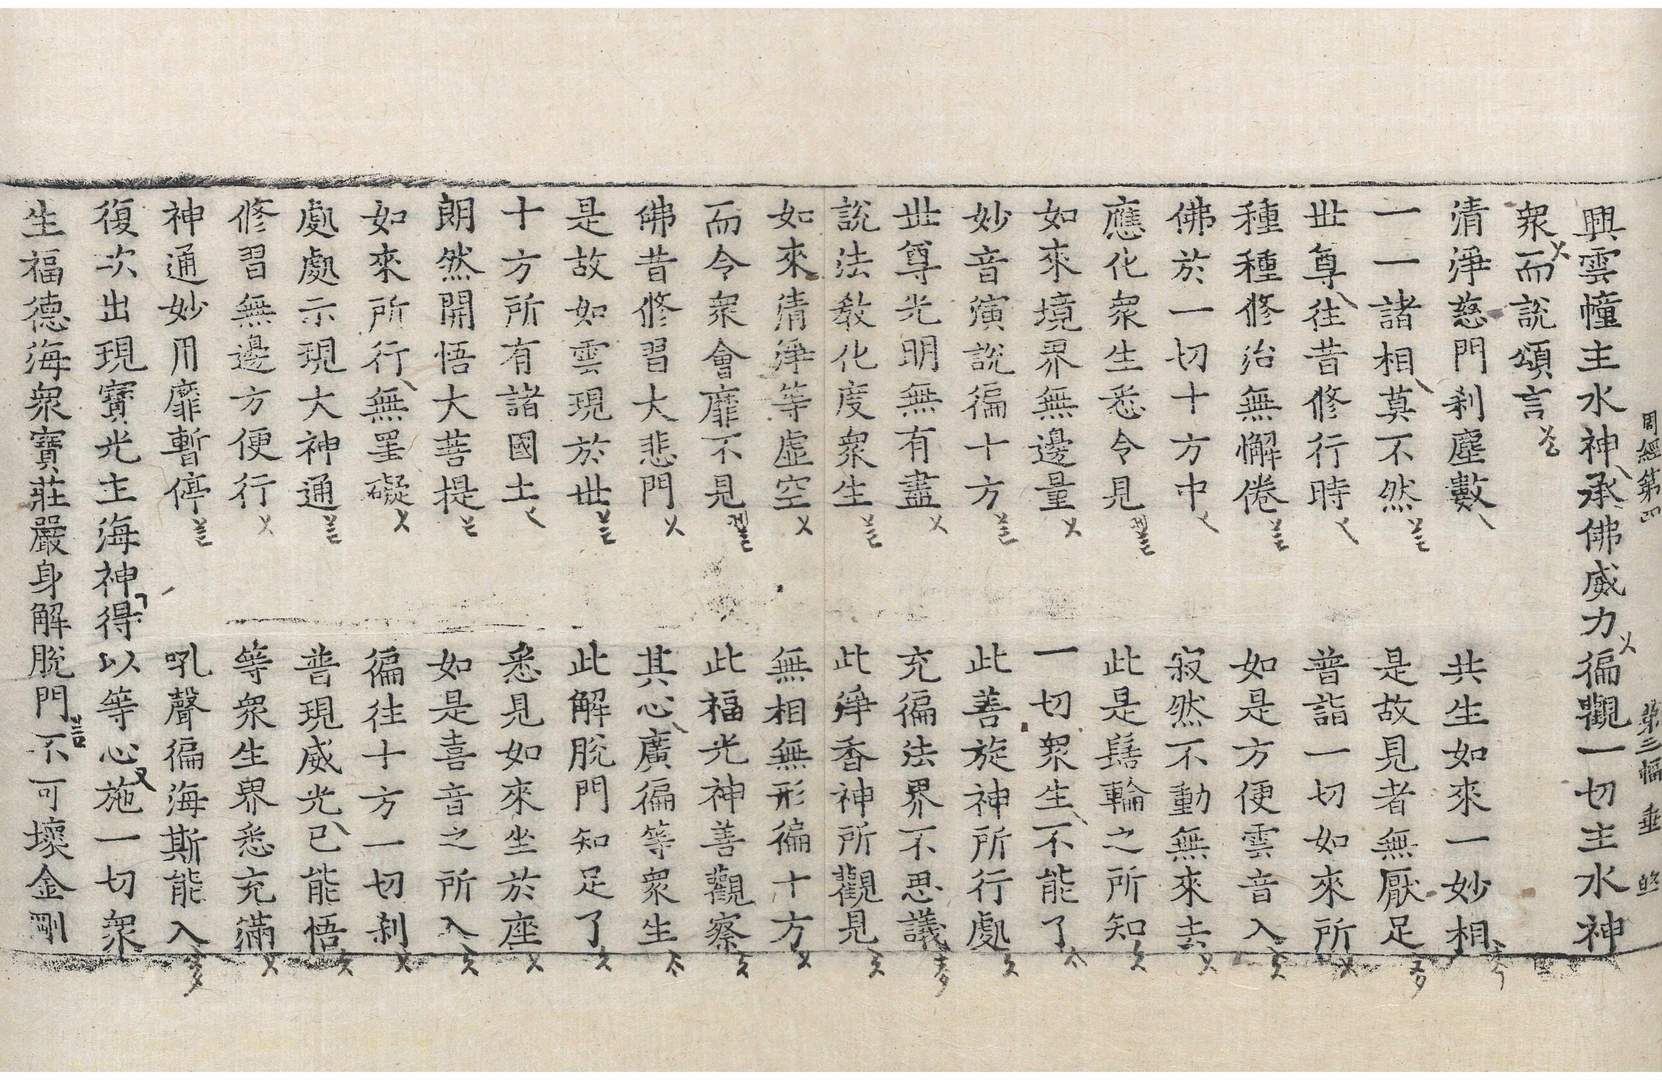 周經第四　第三幅
興雲幢主水神承佛威力徧觀一切主水神
衆而說頌言
清淨慈門刹塵數　共生如來一妙相
一一諸相莫不然　是故見者無厭足
世尊往昔修行時　普詣一切如來所
種種修治無懈倦　如是方便雲音入
佛於一切十方中　寂然不動無來去
應化衆生悉令見　此是髻輪之所知
如來境界無邊量　一切衆生不能了
妙音演說徧十方　此善旋神所行處
世尊光明無有盡　充徧法界不思議
說法教化度衆生　此淨香神所觀見
如來清淨等虛空　無相無形徧十方
而令衆會靡不見　此福光神善觀察
佛昔修習大悲門　其心廣徧等衆生
是故如雲現於世　此解脫門知足了
十方所有諸國土　悉見如來坐於座
朗然開悟大菩提　如是喜音之所入
如來所行無罣礙　徧往十方一切刹
處處示現大神通　普現威光已能悟
修習無邊方便行　等衆生界悉充滿
神通妙用靡暫停　吼聲徧海斯能入
復次出現寶光主海神得以等心施一切衆
生福德海衆寶莊嚴身解脫門不可壞金剛